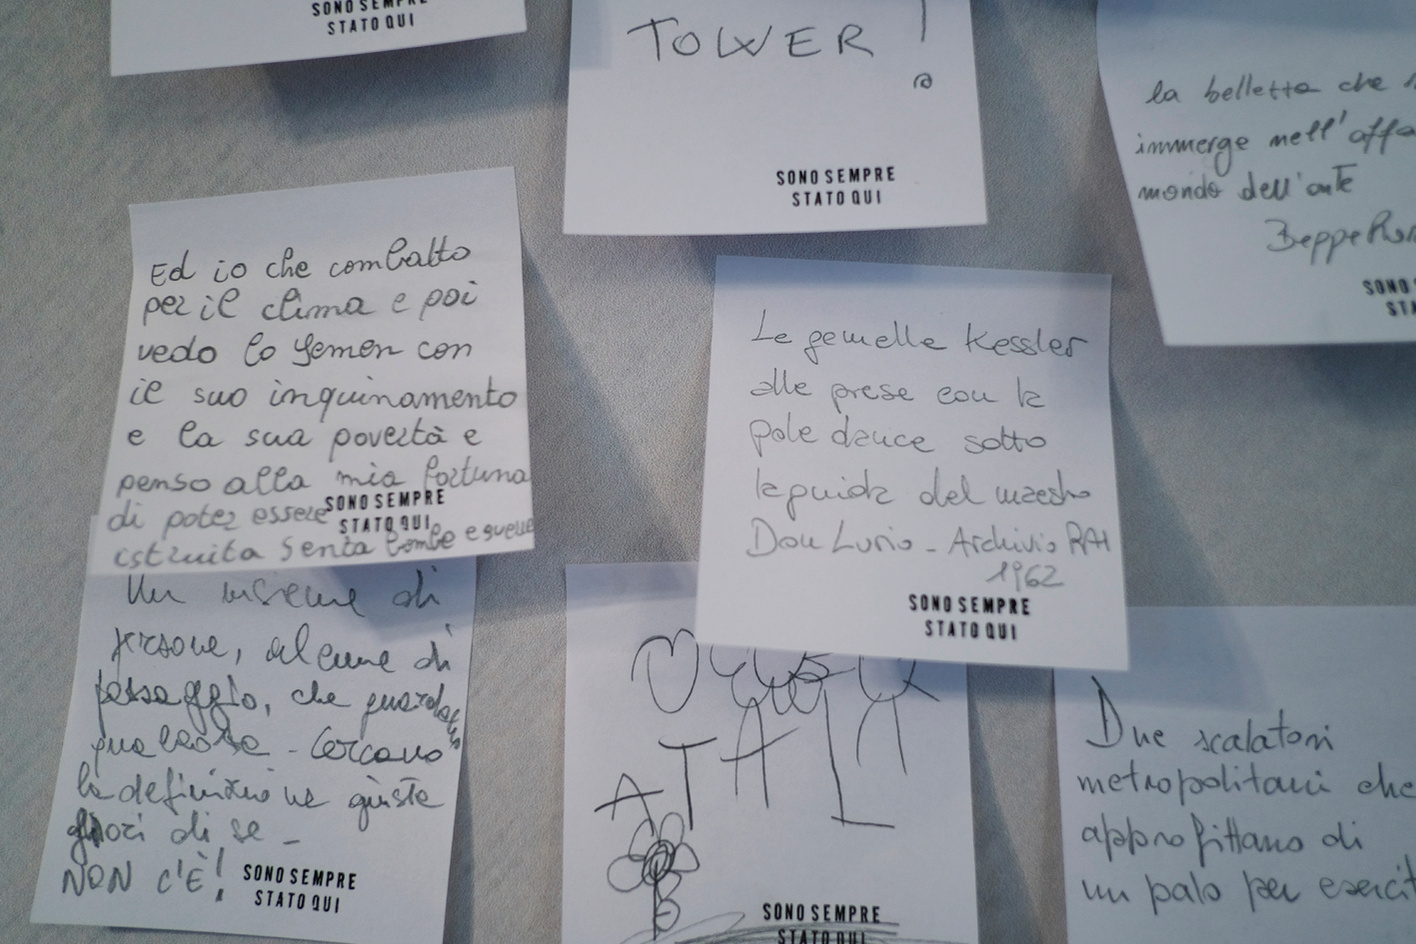 SONO SEMPRE
STATO QUI
TOWER !
@
SONO SEMPRE
STATO QUI
la belletta che
immerge nell'
mondo dell'arte
Beppe
SONO
Ed io che combatto
per il clima e poi
vedo lo Yemen con
il suo inquinamento
e la sua povertà e
penso alla mia fortuna
di poter essere
istruita senza bombe e guerre
SONO SEMPRE
STATO QUI
Le gemelle Kessler
alle prese con la
pole dance sotto
la guida del maestro
Don Lurio - Archivio RAI
1962
SONO SEMPRE
STATO QUI
Un insieme di
persone, alcune di
passaggio, che guardano
qualcosa - Cercano
la definizione giusta
fuori di se -
NON C'È!
SONO SEMPRE
STATO QUI
SONO SEMPRE
STATO QUI
Due scalatori
metropolitani che
approfittano di
un palo per